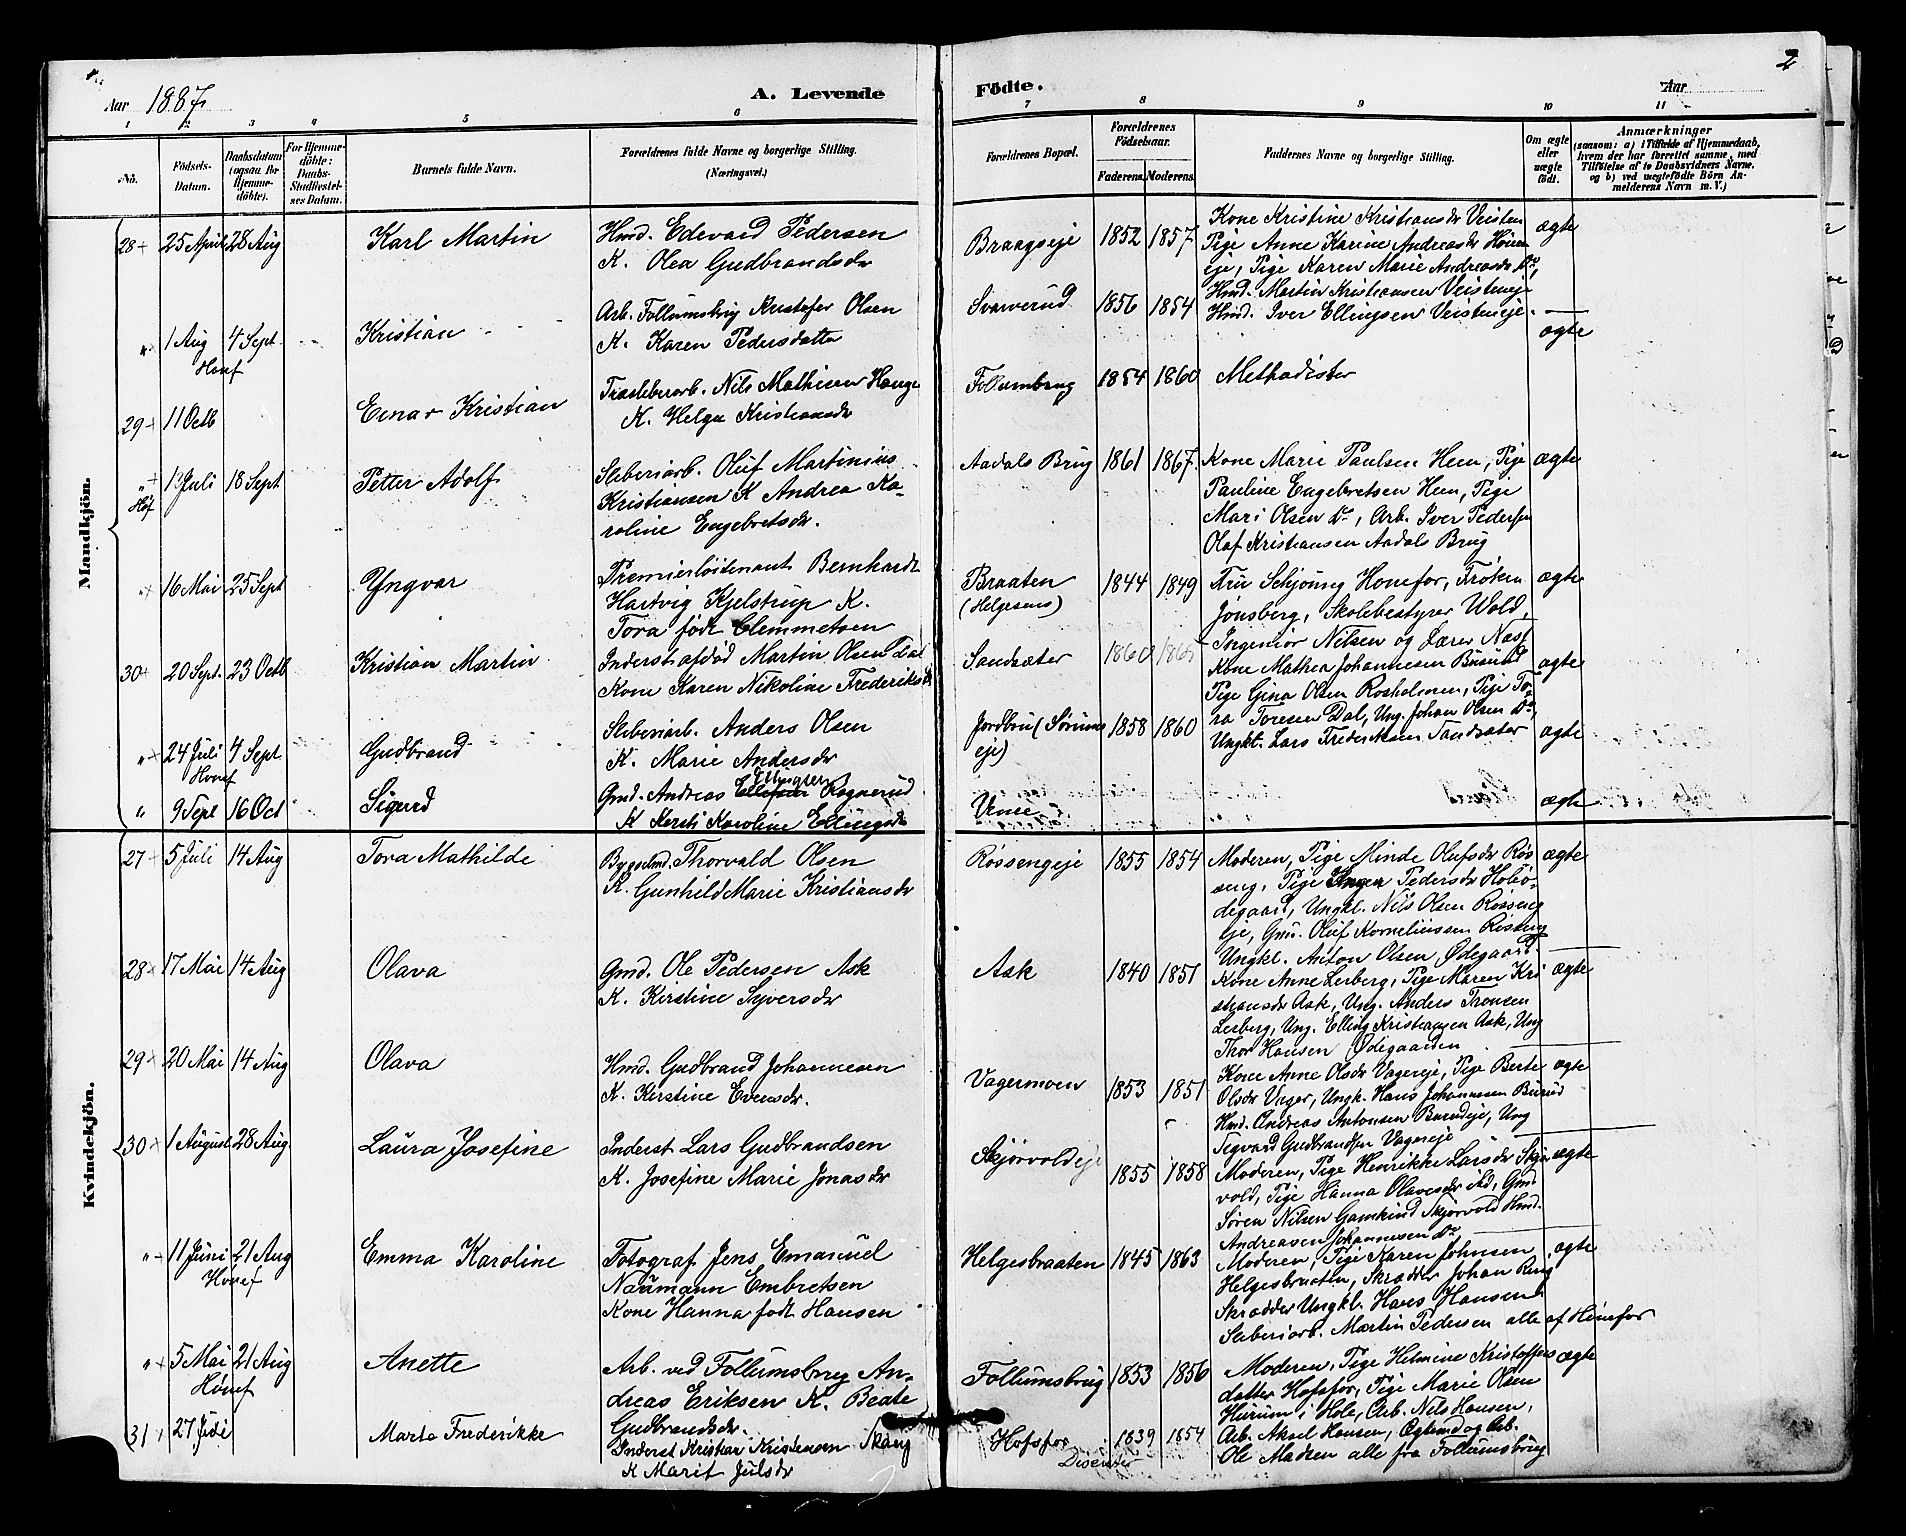 2
Aar 1887.
A. Levende Födte.
Aar
1 2 3 4 5 6 7 8 9 10 11
No.
Födsels-
Datum.
Daabsdatum
(ogsaa for
Hjemme-
döbte).
For Hjemme-
döbte:
Daabs-
Stadfæstel-
ses Datum.
Barnets fulde Navn.
Forældrenes fulde Navne og borgerlige Stilling.
(Næringsvei.)
Forældrenes Bopæl.
Forældrenes
Födselsaar.
Faderens. Moderens.
Faddernes Navne og borgerlige Stilling.
Om ægte
eller
uægte
födt.
Anmærkninger
(saasom: a) i Tilfælde af Hjemmedaab,
hvem der har forrettet samme, med
Tilföielse af to Daabsvidners Navne,
og b) ved uægtefödte Börn An-
melderens Navn m. V.)
Mandkjön.
28 25 April 28 Aug Karl Martin
Hmd. Edevard Pedersen
K. Olea Gudbrandsdr
Braagseje 1852 1857
Kone Kristine Kristiansdr Veisten
Pige Anne Karine Andreasdr Hønen
eje, Pige Karen Marie Andreasdr Do,
Hmd. Martin Kristiansen Veisteneje
Hmd. Iver Ellingsen Veisteneje.
ægte
" 1 Aug 4 Sept Kristian
Honf
Arb. Follumsbrug Kristofer Olsen
K. Karen Pedersdatter
Svarverud 1856 1854
ægte
29 11 Octb Einar Kristian
Træsleberarb. Nils Mathisen Hauge
K. Helga Kristiansdr
Follumbrug 1854 1860 Methodister
" 13 Juli 18 Sept Petter Adolf
Høf
Sleberiarb. Oluf Martinius
Kristiansen K Andrea Ka-
roline Engebretsdr.
Aadals Brug 1861 1867
Kone Marie Paulsen Hem, Pige
Pauline Engebretsen Hem, Pige
Mari Olsen Do, Arb. Iver Pedersen
Olaf Kristiansen Aadals Brug
ægte
" 16 Mai 25 Sept Yngvar
Premierløitenant Bernhardt
Hartvig Kjelstrup K.
Tora født Clemmetsen
Braaten
(Helgesens)
1844 1849
Fru Schjoung Honefos, Frøken
Jønsberg, Skolebestyrer Wold,
Ingeniør Nilsen og Lærer Næss
ægte
30 20 Sept. 23 Octb Kristian Martin
Inderst afdød Martin Olsen Dal
Kone Karen Nikoline Frederiksdr
Sandsæter 1860
Kone Mathea Johannesen Busund
Pige Gina Olsen Rosholmen, Pige To-
ra Toresen Dal, Ung. Johan Olsen Do,
Ungkl. Lars Frederiksen Sandsæter
ægte
" 24 Juli 4 Sept Gudbrand
Honef
Sleberiarb. Anders Olsen
K. Marie Andersdr
Jordbru (Sørums
eje)
1858 1860
ægte
" 9 Sept 16 Oct Sigurd
Gmd. Andreas Ellingsen Rognerud
K Kersti Karoline Ellingsdr
ægte
Kvindekjön.
27 5 Juli 14 Aug Tora Mathilde
Bygselmd. Thorvald Olsen
K. Gunhild Marie Kristiansdr
Røssengeje 1855 1854
Moderen, Pige Minde Olufsdr Røs
seng, Pige Inger Pedersdr
degaard, Ungkl. Nils Olsen Røsseng
eje, Gmd. Oluf Korneliussen Røsseng
Ungkl. Anton Olsen Ødegaard.
ægte
28 17 Mai 14 Aug Olava
Gmd. Ole Pedersen Ask
K. Kirstine Syversdr
Ask 1840 1851
Kone Anne Lerberg, Pige Maren Kri
stiansdr Ask, Ung. Anders Tronsen
Lerberg, Ung. Elling Kristiansen Ask, Ung
Thor Hansen Ødegaarden
ægte
29 20 Mai 14 Aug Olava
Hmd. Gudbrand Johannesen
K. Kirstine Evensdr.
Vagermoen 1853 1851
Kone Anne Olsdr Vagereje, Pige Berte
Olsdr Vager, Ungk. Hans Johannesen Burud
Hmd. Andreas Antonsen Burudeje, Ung
Sigvard Gudbrandsen Vagereje
ægte
30 1 August 28 Aug. Laura Josefine
Inderst Lars Gudbrandsen
K. Josefine Marie Jonasdr
Skjørvoldeje 1855 1858
Moderen, Pige Henrikke Larsdr Skjør
vold, Pige Hanna Olavesdr Gmd
Søren Nilsen Gamkind Skjørvold Hmd.
Andreasen Johannesen Do
ægte
" 11 Juni 21 Aug Emma Karoline
Hønef
Fotograf Jens Emanuel
Naumann Embretsen
Kone Hanna født Hansen
Helgesbraaten 1845 1863
Moderen, Pige Karen Johnsen
Helgesbraaten, Skrædder Johan Ring
Skrædder Ungkl. Hans Hansen
Sleberiarb. Martin Pedersen alle af Hønefos
ægte
" 5 Mai 21 Aug Anette
Hønef
Arb. ved Follumsbrug An-
dreas Eriksen K. Beate
Gudbrandsdr.
Follumsbrug 1853 1856
Moderen, Pige Helmine Kristoffers
datter Hofsfos, Pige Marie Olsen
Hurum i Hole, Arb. Nils Hansen,
Arb. Aksel Hansen, og Arb.
Ole Madsen alle fra Follumsbrug
ægte
31 27 Juli Marta Frederikke
Inderst Kristian Kristensen Skaug
K Marit Julsdr
Hofsfos 1839 1854
Disenter